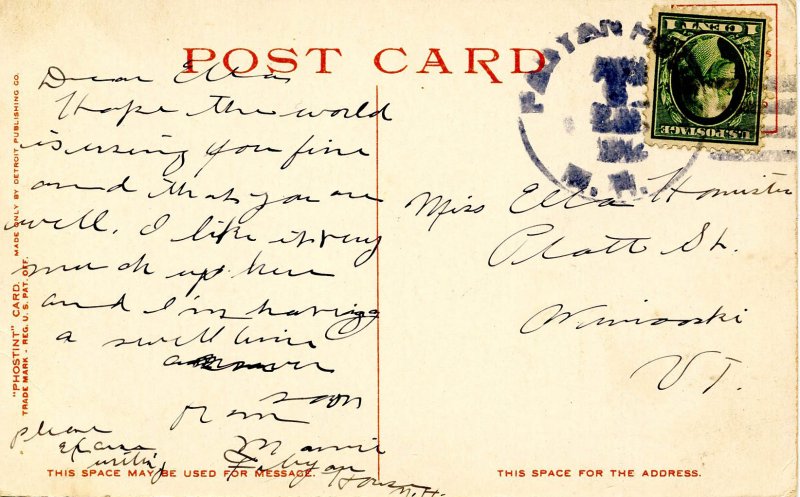 POST CARD
Dear Ella
I hope the world
is using you fine
and that you are
well. I like it very
much up here
and I'm having
a swell time
answer
soon
from
Mamie
Fabyan
House N.H.
please
excuse
writing
Miss Ella
Platt St.
Winooski
VT.
FABYAN HOUSE
N.H.
1 CENT 1
U.S. POSTAGE
"PHOSTINT" CARD. MADE ONLY BY DETROIT PUBLISHING CO.
TRADE MARK - REG. U.S. PAT. OFF.
THIS SPACE MAY BE USED FOR MESSAGE.
THIS SPACE FOR THE ADDRESS.